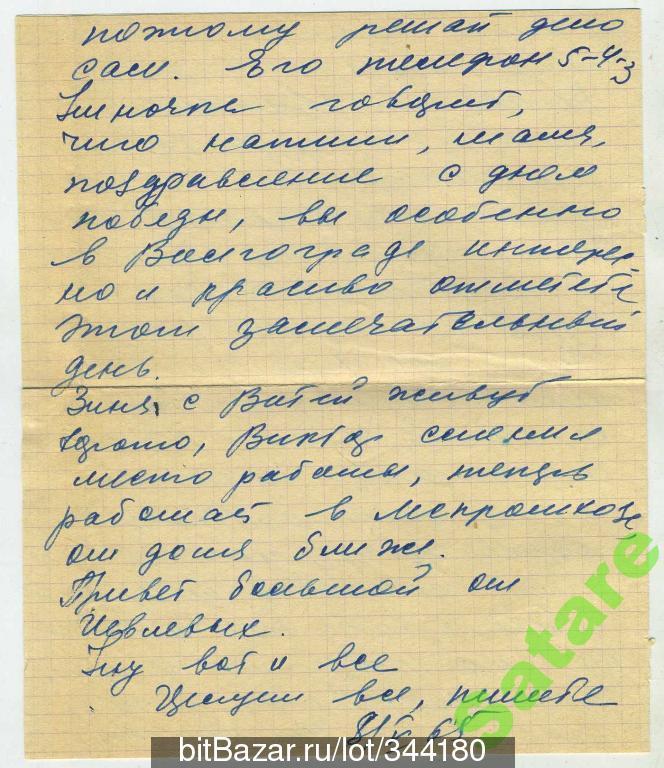 поэтому решай дело
сам. Его телефон 5-4-3
говорит,
что напиши, мама,
поздравление с днем
победы, вы особенно
в Волгограде интерес
но и красиво отметете
этот замечательный
день.
Зина с Витей живут
хорошо, Виктор сменил
место работы, теперь
работает в
от дома ближе.
Привет большой от
Ну вот и все
Целуем все, пишите
65
satare
bitBazar.ru/lot/344180